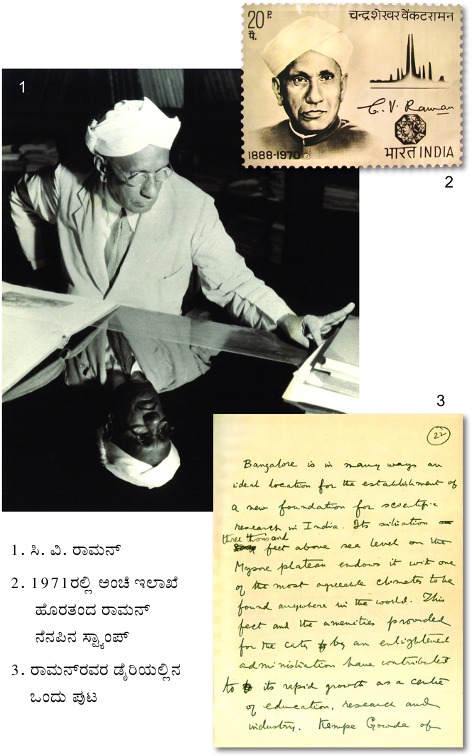 1
20 P.
पै.
चन्द्रशेखर वेंकटरामन
C. V. Raman
1888-1970
भारत INDIA
2
3
22
Bangalore is in many ways an
ideal location for the establishment of
a new foundation for scientific
research in India. Its situation
three thousand
feet above sea level on the
Mysore plateau endows it with one
of the most agreeable climates to be
found anywhere in the world. This
fact and the amenities provided
for the city by an enlightened
administration have contributed
to its rapid growth as a centre
of education, research and
industry. Kempe Gowda of
1. ಸಿ. ವಿ. ರಾಮನ್
2. 1971ರಲ್ಲಿ ಅಂಚೆ ಇಲಾಖೆ
ಹೊರತಂದ ರಾಮನ್
ನೆನಪಿನ ಸ್ಟ್ಯಾಂಪ್
3. ರಾಮನ್‌ರವರ ಡೈರಿಯಲ್ಲಿನ
ಒಂದು ಪುಟ